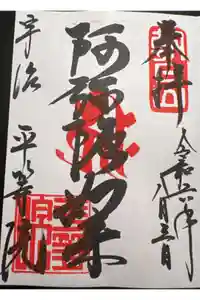 奉拝
令和 年
八月三日
阿弥陀如来
宇治
平等院